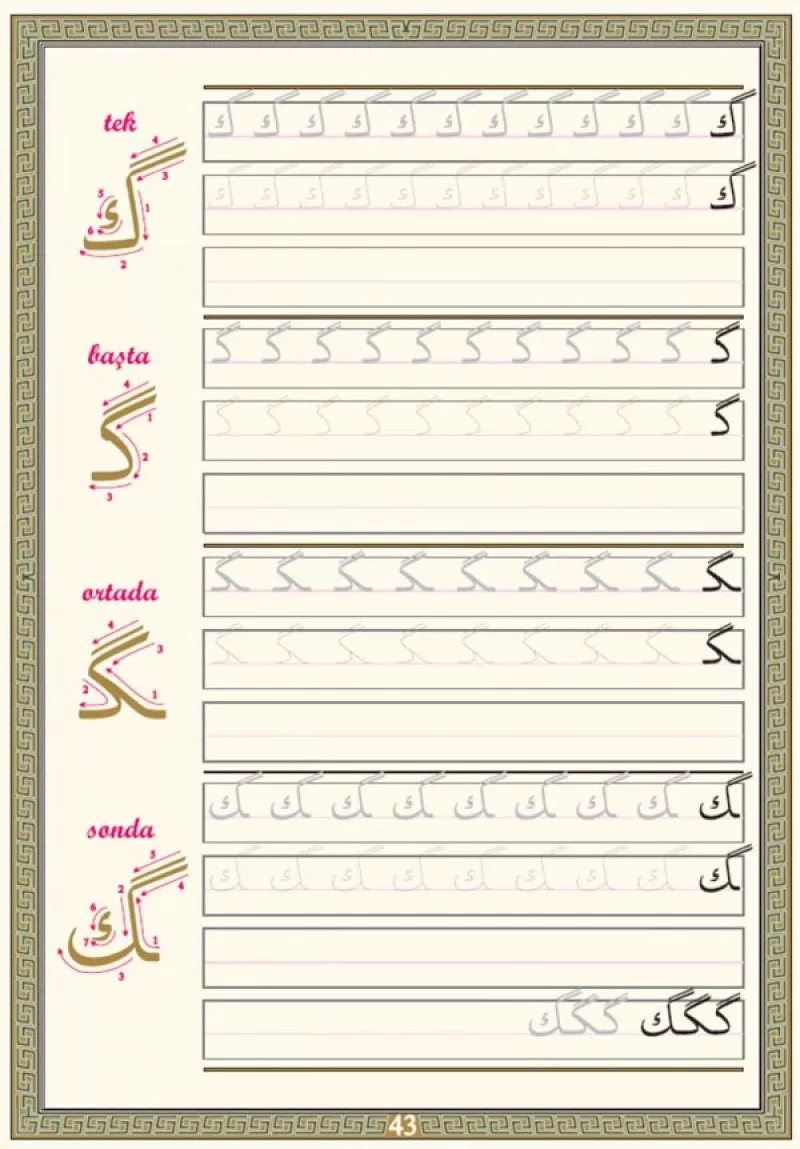 tek
4
3
5
1
6
2
گ گ گ گ گ گ گ گ گ گ گ گ
گ گ گ گ گ گ گ گ گ گ گ گ
başta
4
1
2
3
گـ گـ گـ گـ گـ گـ گـ گـ گـ گـ گـ
گـ گـ گـ گـ گـ گـ گـ گـ گـ گـ گـ
ortada
4
3
2
1
ـگـ ـگـ ـگـ ـگـ ـگـ ـگـ ـگـ ـگـ ـگـ
ـگـ ـگـ ـگـ ـگـ ـگـ ـگـ ـگـ ـگـ ـگـ
sonda
5
2
4
6
7
1
3
ـگ ـگ ـگ ـگ ـگ ـگ ـگ ـگ ـگ
ـگ ـگ ـگ ـگ ـگ ـگ ـگ ـگ ـگ
گگگ گگگ
43